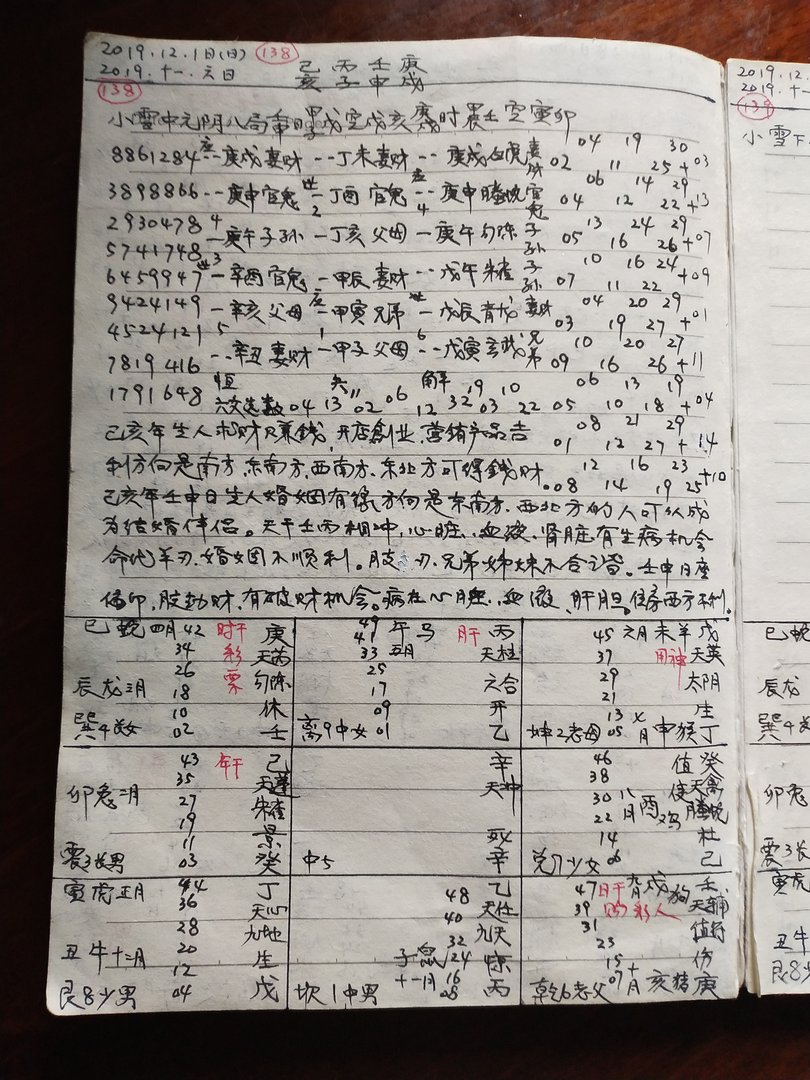 2019.12.1日(日) 138 己丙壬庚
2019.十一.六日 亥子申戌
138
小雪中元阴八局 甲子戌空戌亥 庚戌时 空寅卯
8861284 -- 庚戌妻财 -- 丁未妻财 -- 庚戌白虎 妻财 04 19 30
02 11 25+03
3898866 -- 庚申官鬼 世 - 丁酉官鬼 应 -- 庚申螣蛇 官鬼 06 14 29
2 4 04 12 22+13
2930478 4 - 庚午子孙 - 丁亥父母 - 庚午勾陈 子孙 13 24 29
5741748 05 16 26+07
6459947 世 3 - 辛酉官鬼 - 甲辰妻财 -- 戊午朱雀 子孙 10 16 24
07 11 22 +09
9424149 - 辛亥父母 应 - 甲寅兄弟 世 - 戊辰青龙 妻财 04 20 29
4524121 5 1 6 03 19 27+01
7819416 -- 辛丑妻财 - 甲子父母 -- 戊寅玄武 兄弟 10 20 27
09 16 26+11
1791648 恒 夬 解 06 13 19
六爻选数 04 13 11 02 06 12 32 19 03 10 22 05 10 18+04
己亥年生人求财只赚钱,开店创业,营销产品告 08 21 29
01 12 27+14
利方向是南方.东南方.西南方.东北方可得錢财. 12 16 23
08 14 19 25+10
己亥年壬申日生人婚姻有缘方向是东南方.西北方的人可以成
为结婚伴侣。天干壬丙相冲,心脏、血液、肾脏有生病机会
命地羊刃.婚姻不顺利。肢刃.兄弟姊妹不合谐。壬申日座
偏印,肢劫财,有破财机会。病在心脏、血液、肝胆。住房西方不利。
巳蛇四月 42 时干 庚
34 彩 天芮
26 票 勾陈
辰龙三月 18
10 休
巽4长女 02 壬
49
41 午马 肝 丙
33 五月 天柱
25
17 六合
09 开
离9中女 01 乙
45 六月未羊 戊
37 用神 天英
29 太阴
21
13 七 生
坤2老母 05 月 申猴 丁
43 年干 己
35 天蓬
卯兔二月 27 朱雀
19
11 景
震3长男 03 癸
辛
天冲
死
中5 辛
46 值 癸
38 使 天禽
30 八 酉 螣蛇
22 月 鸡
14 杜
兑7少女 06 己
寅虎正月 44 丁
36 天心
28 九地
丑牛十二月 20 生
12
艮8少男 04 戊
48 乙
40 天任
32 九天
子鼠 24 惊
十一月 16
坎1中男 08 丙
47 日干 九月 戌狗 壬
39 购彩人 天辅
31 值符
23
15 伤
乾6老父 07 十月 亥猪 庚
2019.12
2019.十一
139
小雪下
巳蛇
辰龙
巽4长
卯兔
震3长
寅虎
丑牛
艮8少